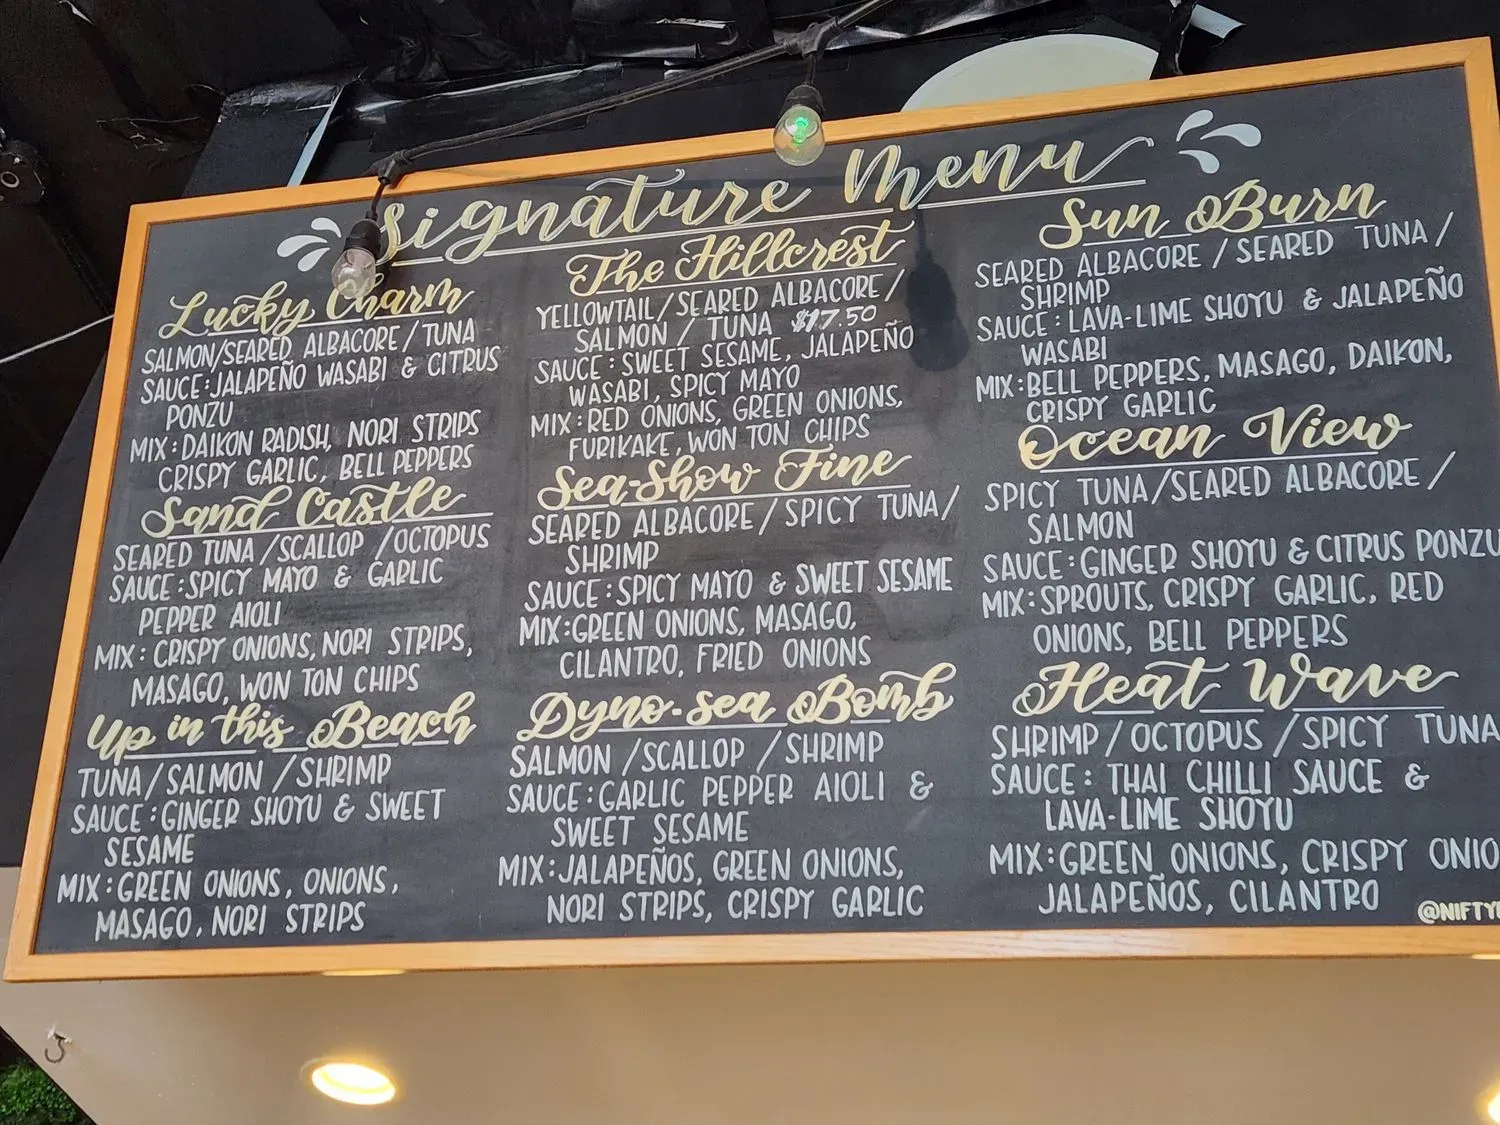 Signature Menu
Lucky Charm
SALMON/SEARED ALBACORE/TUNA
SAUCE:JALAPEÑO WASABI & CITRUS
PONZU
MIX:DAIKON RADISH, NORI STRIPS
CRISPY GARLIC, BELL PEPPERS
Sand Castle
SEARED TUNA/SCALLOP/OCTOPUS
SAUCE:SPICY MAYO & GARLIC
PEPPER AIOLI
MIX: CRISPY ONIONS, NORI STRIPS,
MASAGO, WON TON CHIPS
Up in this Beach
TUNA/SALMON/SHRIMP
SAUCE:GINGER SHOYU & SWEET
SESAME
MIX:GREEN ONIONS, ONIONS,
MASAGO, NORI STRIPS
The Hillcrest
YELLOWTAIL/SEARED ALBACORE/
SALMON / TUNA $17.50
SAUCE:SWEET SESAME, JALAPEÑO
WASABI, SPICY MAYO
MIX:RED ONIONS, GREEN ONIONS,
FURIKAKE, WON TON CHIPS
Sea-Show Fine
SEARED ALBACORE/SPICY TUNA/
SHRIMP
SAUCE:SPICY MAYO & SWEET SESAME
MIX:GREEN ONIONS, MASAGO,
CILANTRO, FRIED ONIONS
Dyno-sea Bomb
SALMON/SCALLOP/SHRIMP
SAUCE:GARLIC PEPPER AIOLI &
SWEET SESAME
MIX:JALAPEÑOS, GREEN ONIONS,
NORI STRIPS, CRISPY GARLIC
Sun Burn
SEARED ALBACORE/SEARED TUNA/
SHRIMP
SAUCE:LAVA-LIME SHOYU & JALAPEÑO
WASABI
MIX:BELL PEPPERS, MASAGO, DAIKON,
CRISPY GARLIC
Ocean View
SPICY TUNA/SEARED ALBACORE/
SALMON
SAUCE:GINGER SHOYU & CITRUS PONZU
MIX:SPROUTS, CRISPY GARLIC, RED
ONIONS, BELL PEPPERS
Heat Wave
SHRIMP/OCTOPUS/SPICY TUNA
SAUCE: THAI CHILLI SAUCE &
LAVA-LIME SHOYU
MIX:GREEN ONIONS, CRISPY ONIO
JALAPEÑOS, CILANTRO